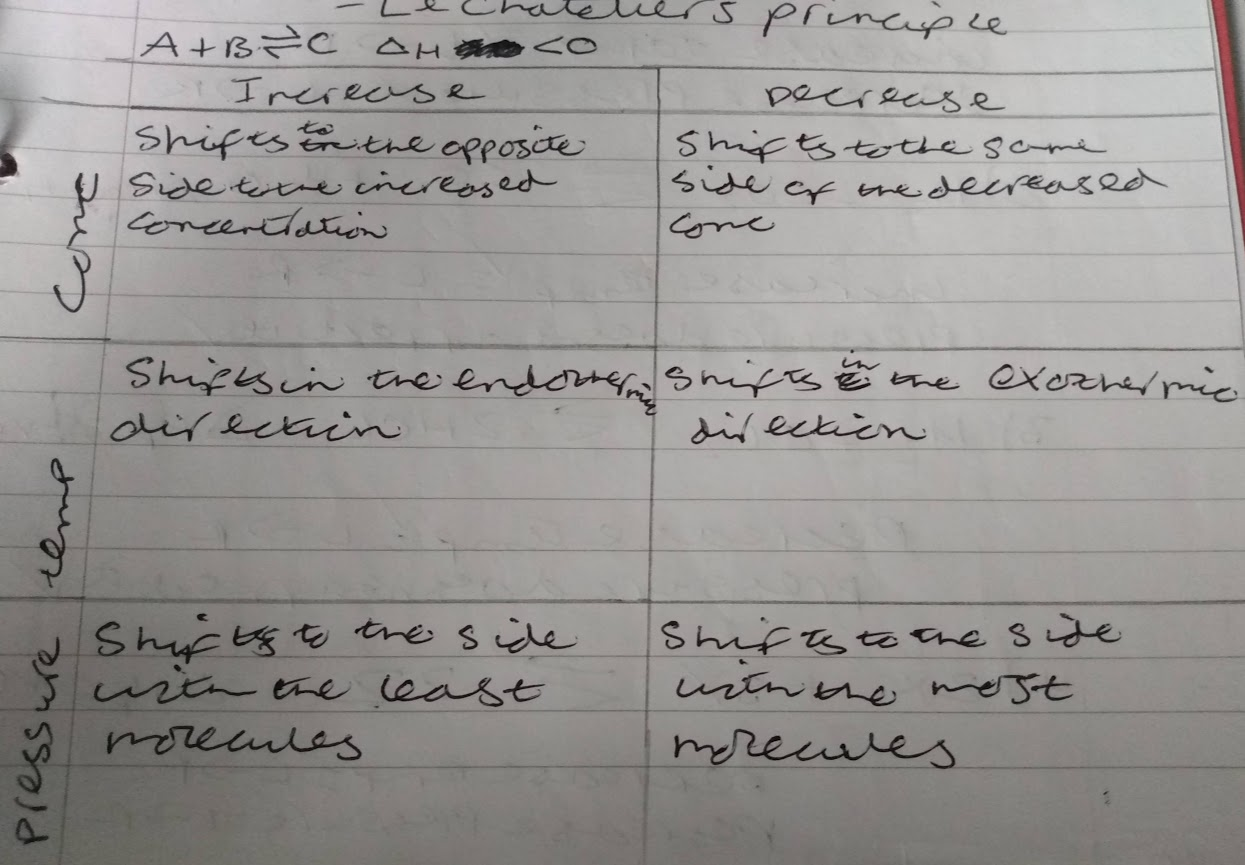 - Le Chateliers principle
A + B ⇌ C ΔH <0
Increase
Decrease
Conc
Shifts to the opposite
side to the increased
concentration
Shifts to the same
side of the decreased
conc
temp
Shifts in the endothermic
direction
Shifts in the exothermic
direction
Pressure
Shifts to the side
with the least
molecules
Shifts to the side
with the most
molecules